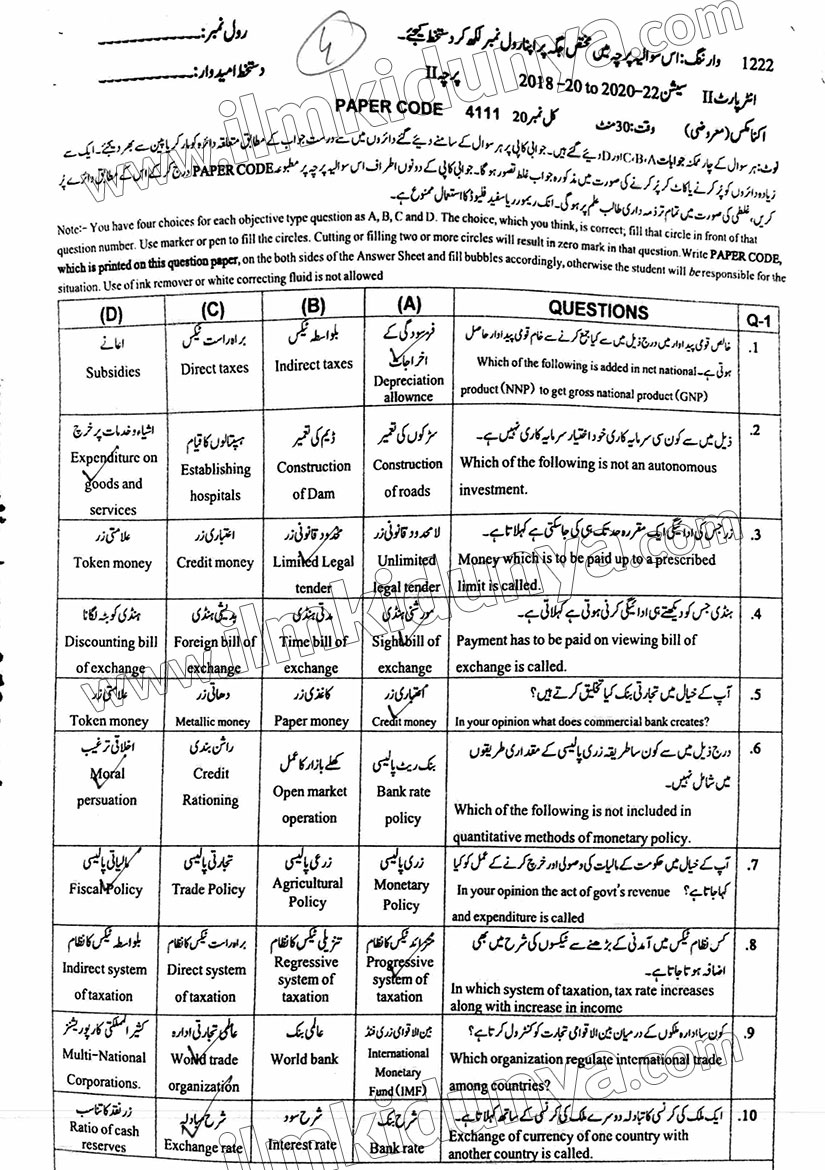 رول نمبر:
4
وارننگ: اس سوالیہ پرچہ میں مختص جگہ پر اپنا رول نمبر لکھ کر دستخط کیجئے۔
1222
دستخط امیدوار:
پرچہ II
سیشن 2018-20 to 2020-22
انٹر پارٹ II
اکنامکس (معروضی)
وقت: 30 منٹ
کل نمبر 20
PAPER CODE 4111
نوٹ: ہر سوال کے چار ممکنہ جوابات A، B، C اور D دیئے گئے ہیں۔ جوابی کاپی پر ہر سوال کے سامنے دیئے گئے دائروں میں سے درست جواب کے مطابق متعلقہ دائرہ کو مارکر یا پین سے بھر دیجئے۔ ایک سے
زیادہ دائروں کو پُر کرنے یا کاٹ کر پُر کرنے کی صورت میں مذکورہ جواب غلط تصور ہو گا۔ جوابی کاپی کے دونوں اطراف اس سوالیہ پرچہ پر مطبوعہ PAPER CODE درج کر کے اس کے مطابق دائرے پُر
کریں، غلطی کی صورت میں تمام تر ذمہ داری طالب علم پر ہو گی۔ انک ریموور یا سفید فلیوڈ کا استعمال ممنوع ہے۔
Note:- You have four choices for each objective type question as A, B, C and D. The choice, which you think, is correct; fill that circle in front of that
question number. Use marker or pen to fill the circles. Cutting or filling two or more circles will result in zero mark in that question. Write PAPER CODE,
which is printed on this question paper, on the both sides of the Answer Sheet and fill bubbles accordingly, otherwise the student will be responsible for the
situation. Use of ink remover or white correcting fluid is not allowed
(D) (C) (B) (A) QUESTIONS Q-1
.1
خالص قومی پیداوار میں درج ذیل میں سے کیا جمع کرنے سے خام قومی پیداوار حاصل
ہوتی ہے۔ Which of the following is added in net national
product (NNP) to get gross national product (GNP)
فرسودگی کے
اخراجات
Depreciation
allownce
بلواسطہ ٹیکس
Indirect taxes
براہ راست ٹیکس
Direct taxes
اعانے
Subsidies
.2
ذیل میں سے کون سی سرمایہ کاری خود اختیار سرمایہ کاری نہیں ہے۔
Which of the following is not an autonomous
investment.
سڑکوں کی تعمیر
Construction
of roads
ڈیم کی تعمیر
Construction
of Dam
ہسپتالوں کا قیام
Establishing
hospitals
اشیاء و خدمات پر خرچ
Expenditure on
goods and
services
.3
زر جس کی ادائیگی ایک مقررہ حد تک ہی کی جا سکتی ہے کہلاتا ہے۔
Money which is to be paid up to a prescribed
limit is called.
لا محدود قانونی زر
Unlimited
legal tender
محدود قانونی زر
Limited Legal
tender
اعتباری زر
Credit money
علامتی زر
Token money
.4
ہنڈی جس کو دیکھتے ہی ادائیگی کرنی ہوتی ہے کہلاتی ہے۔
Payment has to be paid on viewing bill of
exchange is called.
درشنی ہنڈی
Sight bill of
exchange
مدتی ہنڈی
Time bill of
exchange
بدیشی ہنڈی
Foreign bill of
exchange
ہنڈی کو بٹہ لگانا
Discounting bill
of exchange
.5
آپ کے خیال میں تجارتی بنک کیا تخلیق کرتے ہیں؟
In your opinion what does commercial bank creates?
اعتباری زر
Credit money
کاغذی زر
Paper money
دھاتی زر
Metallic money
علامتی زر
Token money
.6
درج ذیل میں سے کون سا طریقہ زری پالیسی کے مقداری طریقوں
میں شامل نہیں۔
Which of the following is not included in
quantitative methods of monetary policy.
بنک ریٹ پالیسی
Bank rate
policy
کھلے بازار کا عمل
Open market
operation
راشن بندی
Credit
Rationing
اخلاقی ترغیب
Moral
persuation
.7
آپ کے خیال میں حکومت کے مالیات کی وصولی اور خرچ کرنے کے عمل کو کیا
کہا جاتا ہے؟ In your opinion the act of govt's revenue
and expenditure is called
زری پالیسی
Monetary
Policy
زرعی پالیسی
Agricultural
Policy
تجارتی پالیسی
Trade Policy
مالیاتی پالیسی
Fiscal Policy
.8
کس نظام ٹیکس میں آمدنی کے بڑھنے سے ٹیکسوں کی شرح میں بھی
اضافہ ہوتا جاتا ہے۔
In which system of taxation, tax rate increases
along with increase in income
متزائد ٹیکس کا نظام
Progressive
system of
taxation
تنزیلی ٹیکس کا نظام
Regressive
system of
taxation
براہ راست ٹیکس کا نظام
Direct system
of taxation
بلواسطہ ٹیکس کا نظام
Indirect system
of taxation
.9
کون سا ادارہ ملکوں کے درمیان بین الاقوامی تجارت کو کنٹرول کرتا ہے؟
Which organization regulate international trade
among countries?
بین الاقوامی زری فنڈ
International
Monetary
Fund (IMF)
عالمی بنک
World bank
عالمی تجارتی ادارہ
World trade
organization
کثیر الملکتی کارپوریشنز
Multi-National
Corporations.
.10
ایک ملک کی کرنسی کا تبادلہ دوسرے ملک کی کرنسی کے ساتھ کہلاتا ہے۔
Exchange of currency of one country with
another country is called.
شرح بنک
Bank rate
شرح سود
Interest rate
شرح مبادلہ
Exchange rate
زر نقد کا تناسب
Ratio of cash
reserves
www.ilmkidunya.com
www.ilmkidunya.com
www.ilmkidunya.com
ilmkidunya.com